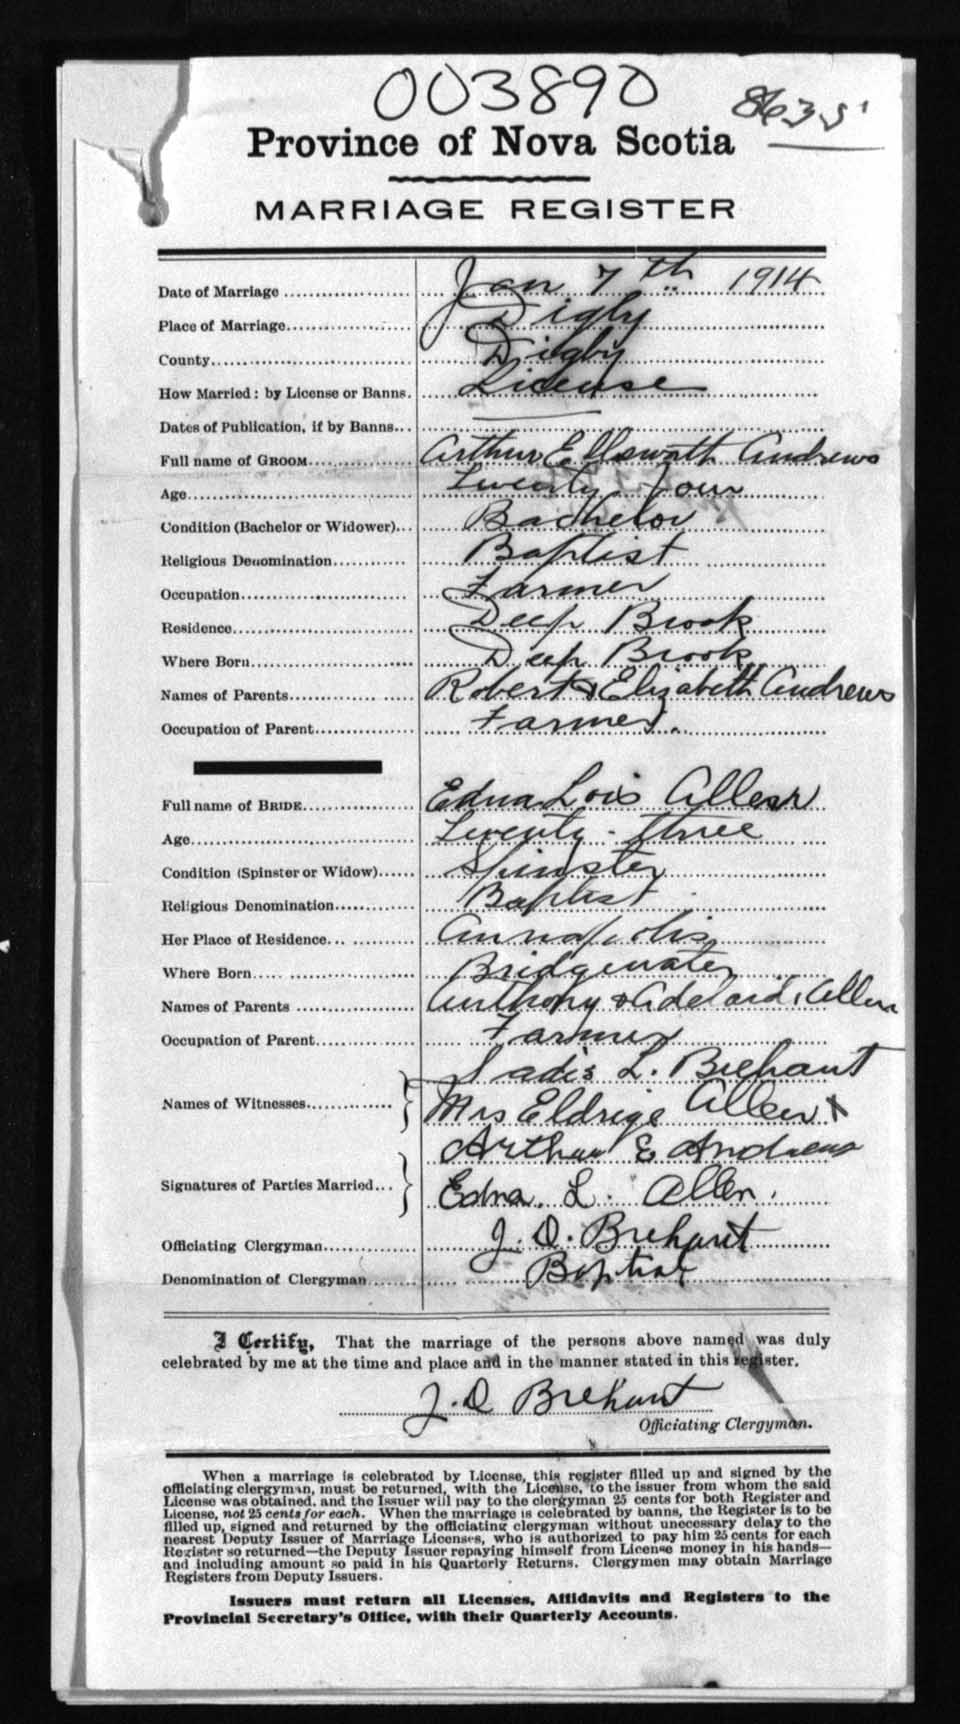 003890
8635
Province of Nova Scotia
MARRIAGE REGISTER
Date of Marriage Jan 7th 1914
Place of Marriage Digby
County Digby
How Married: by License or Banns. License
Dates of Publication, if by Banns
Full name of GROOM Arthur Ellsworth Andrews
Age Twenty four
Condition (Bachelor or Widower) Bachelor
Religious Denomination Baptist
Occupation Farmer
Residence Deep Brook
Where Born Deep Brook
Names of Parents Robert & Elizabeth Andrews
Occupation of Parent Farmer.
Full name of BRIDE Edna Lois Allen
Age Twenty-three
Condition (Spinster or Widow) Spinster
Religious Denomination Baptist
Her Place of Residence Annapolis
Where Born Bridgewater
Names of Parents Anthony & Adelaide Allen
Occupation of Parent Farmer
Sadie L. Brehaut
Names of Witnesses Mrs Eldrige Allen
Arthur E Andrews
Signatures of Parties Married Edna. L. Allen.
Officiating Clergyman J. D. Brehaut
Denomination of Clergyman Baptist
I Certify, That the marriage of the persons above named was duly
celebrated by me at the time and place and in the manner stated in this register.
J. D Brehaut
Officiating Clergyman.
When a marriage is celebrated by License, this register filled up and signed by the
officiating clergyman, must be returned, with the License, to the issuer from whom the said
License was obtained, and the Issuer will pay to the clergyman 25 cents for both Register and
License, not 25 cents for each. When the marriage is celebrated by banns, the Register is to be
filled up, signed and returned by the officiating clergyman without unecessary delay to the
nearest Deputy Issuer of Marriage Licenses, who is authorized to pay him 25 cents for each
Register so returned—the Deputy Issuer repaying himself from License money in his hands—
and including amount so paid in his Quarterly Returns. Clergymen may obtain Marriage
Registers from Deputy Issuers.
Issuers must return all Licenses, Affidavits and Registers to the
Provincial Secretary's Office, with their Quarterly Accounts.